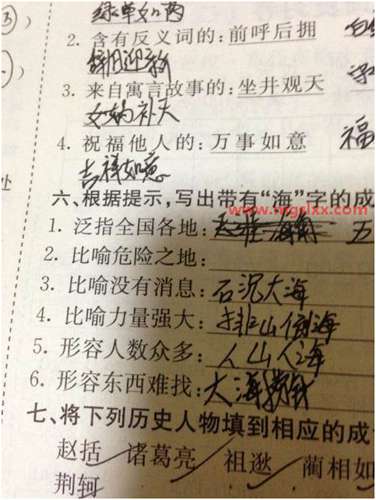 绿草如茵
2. 含有反义词的:前呼后拥
辞旧迎新
3. 来自寓言故事的:坐井观天
女娲补天
4. 祝福他人的:万事如意 福
吉祥如意
六、根据提示,写出带有“海”字的成
www.mgslxx.com
1. 泛指全国各地: 五
2. 比喻危险之地:
3. 比喻没有消息:石沉大海
4. 比喻力量强大:排山倒海
5. 形容人数众多:人山人海
6. 形容东西难找:大海捞针
七、将下列历史人物填到相应的成
赵括 诸葛亮 祖逖 蔺相如
荆轲
处